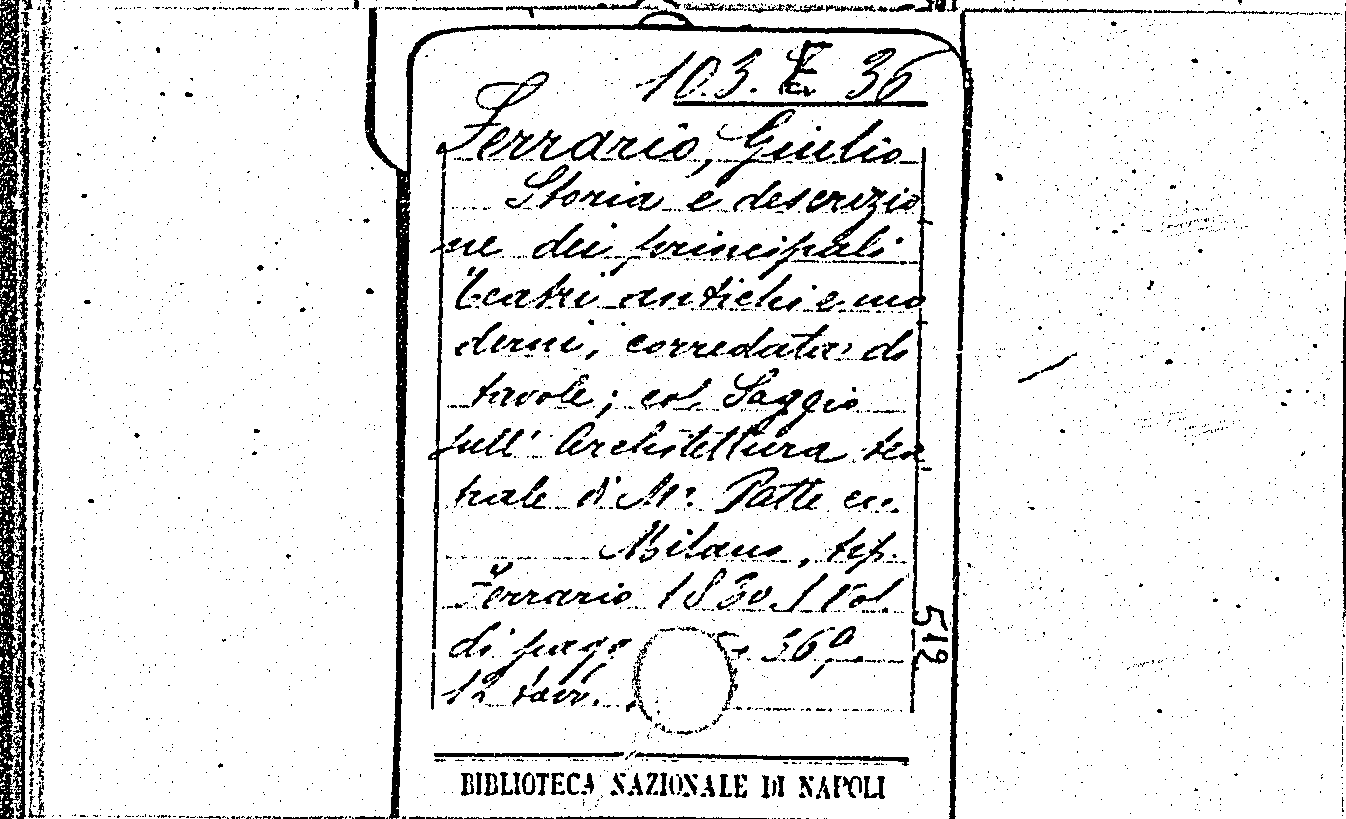 103. E 36
Ferrario, Giulio
Storia e descrizio
ne dei principali
teatri antichi e mo
derni, corredata di
tavole; col Saggio
sull' Architettura tea
trale di Mr. Patte ecc.
Milano, tip.
Ferrario 1830. 1 Vol.
di pagg 36
12 tavv.
512
BIBLIOTECA NAZIONALE DI NAPOLI